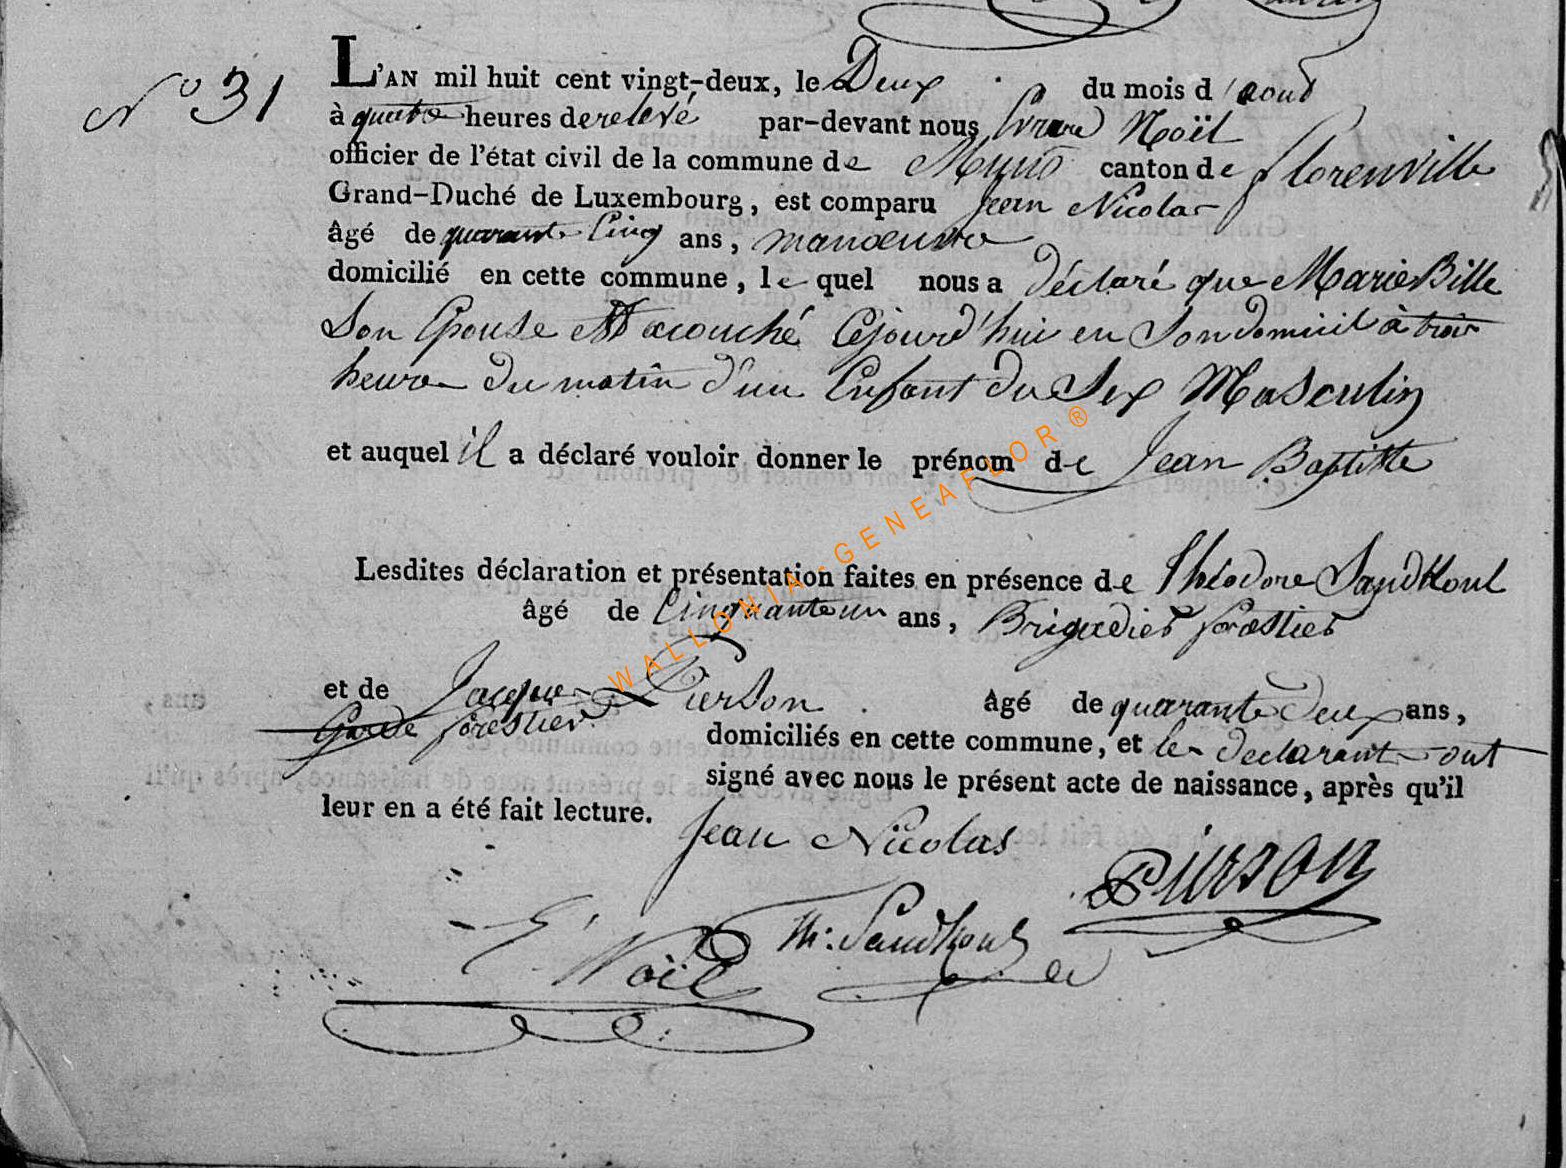 N° 31
L'AN mil huit cent vingt-deux, le Deux du mois d'aout
à quatre heures de relevé par-devant nous Evrard Noël
officier de l'état civil de la commune de Muno canton de florenville
Grand-Duché de Luxembourg, est comparu Jean Nicolas
âgé de quarante Cinq ans, manoeuvre
domicilié en cette commune, le quel nous a déclaré que Marie Bille
Son Epouse est acouché Cejourd'hui en Son domicil à trois
heure du matin d'un Enfant du Sex Masculin
et auquel il a déclaré vouloir donner le prénom de Jean Baptiste
Lesdites déclaration et présentation faites en présence de Théodore Sandkoul
âgé de Cinquante un ans, Brigadier forestier
et de Jacque Pierson âgé de quarante Deux ans,
Garde forestier domiciliés en cette commune, et les declarant ont
signé avec nous le présent acte de naissance, après qu'il
leur en a été fait lecture.
Jean Nicolas
Pierson
Th: Sandkoul
E. Noël
WALLONIA-GENEAFLOR ®